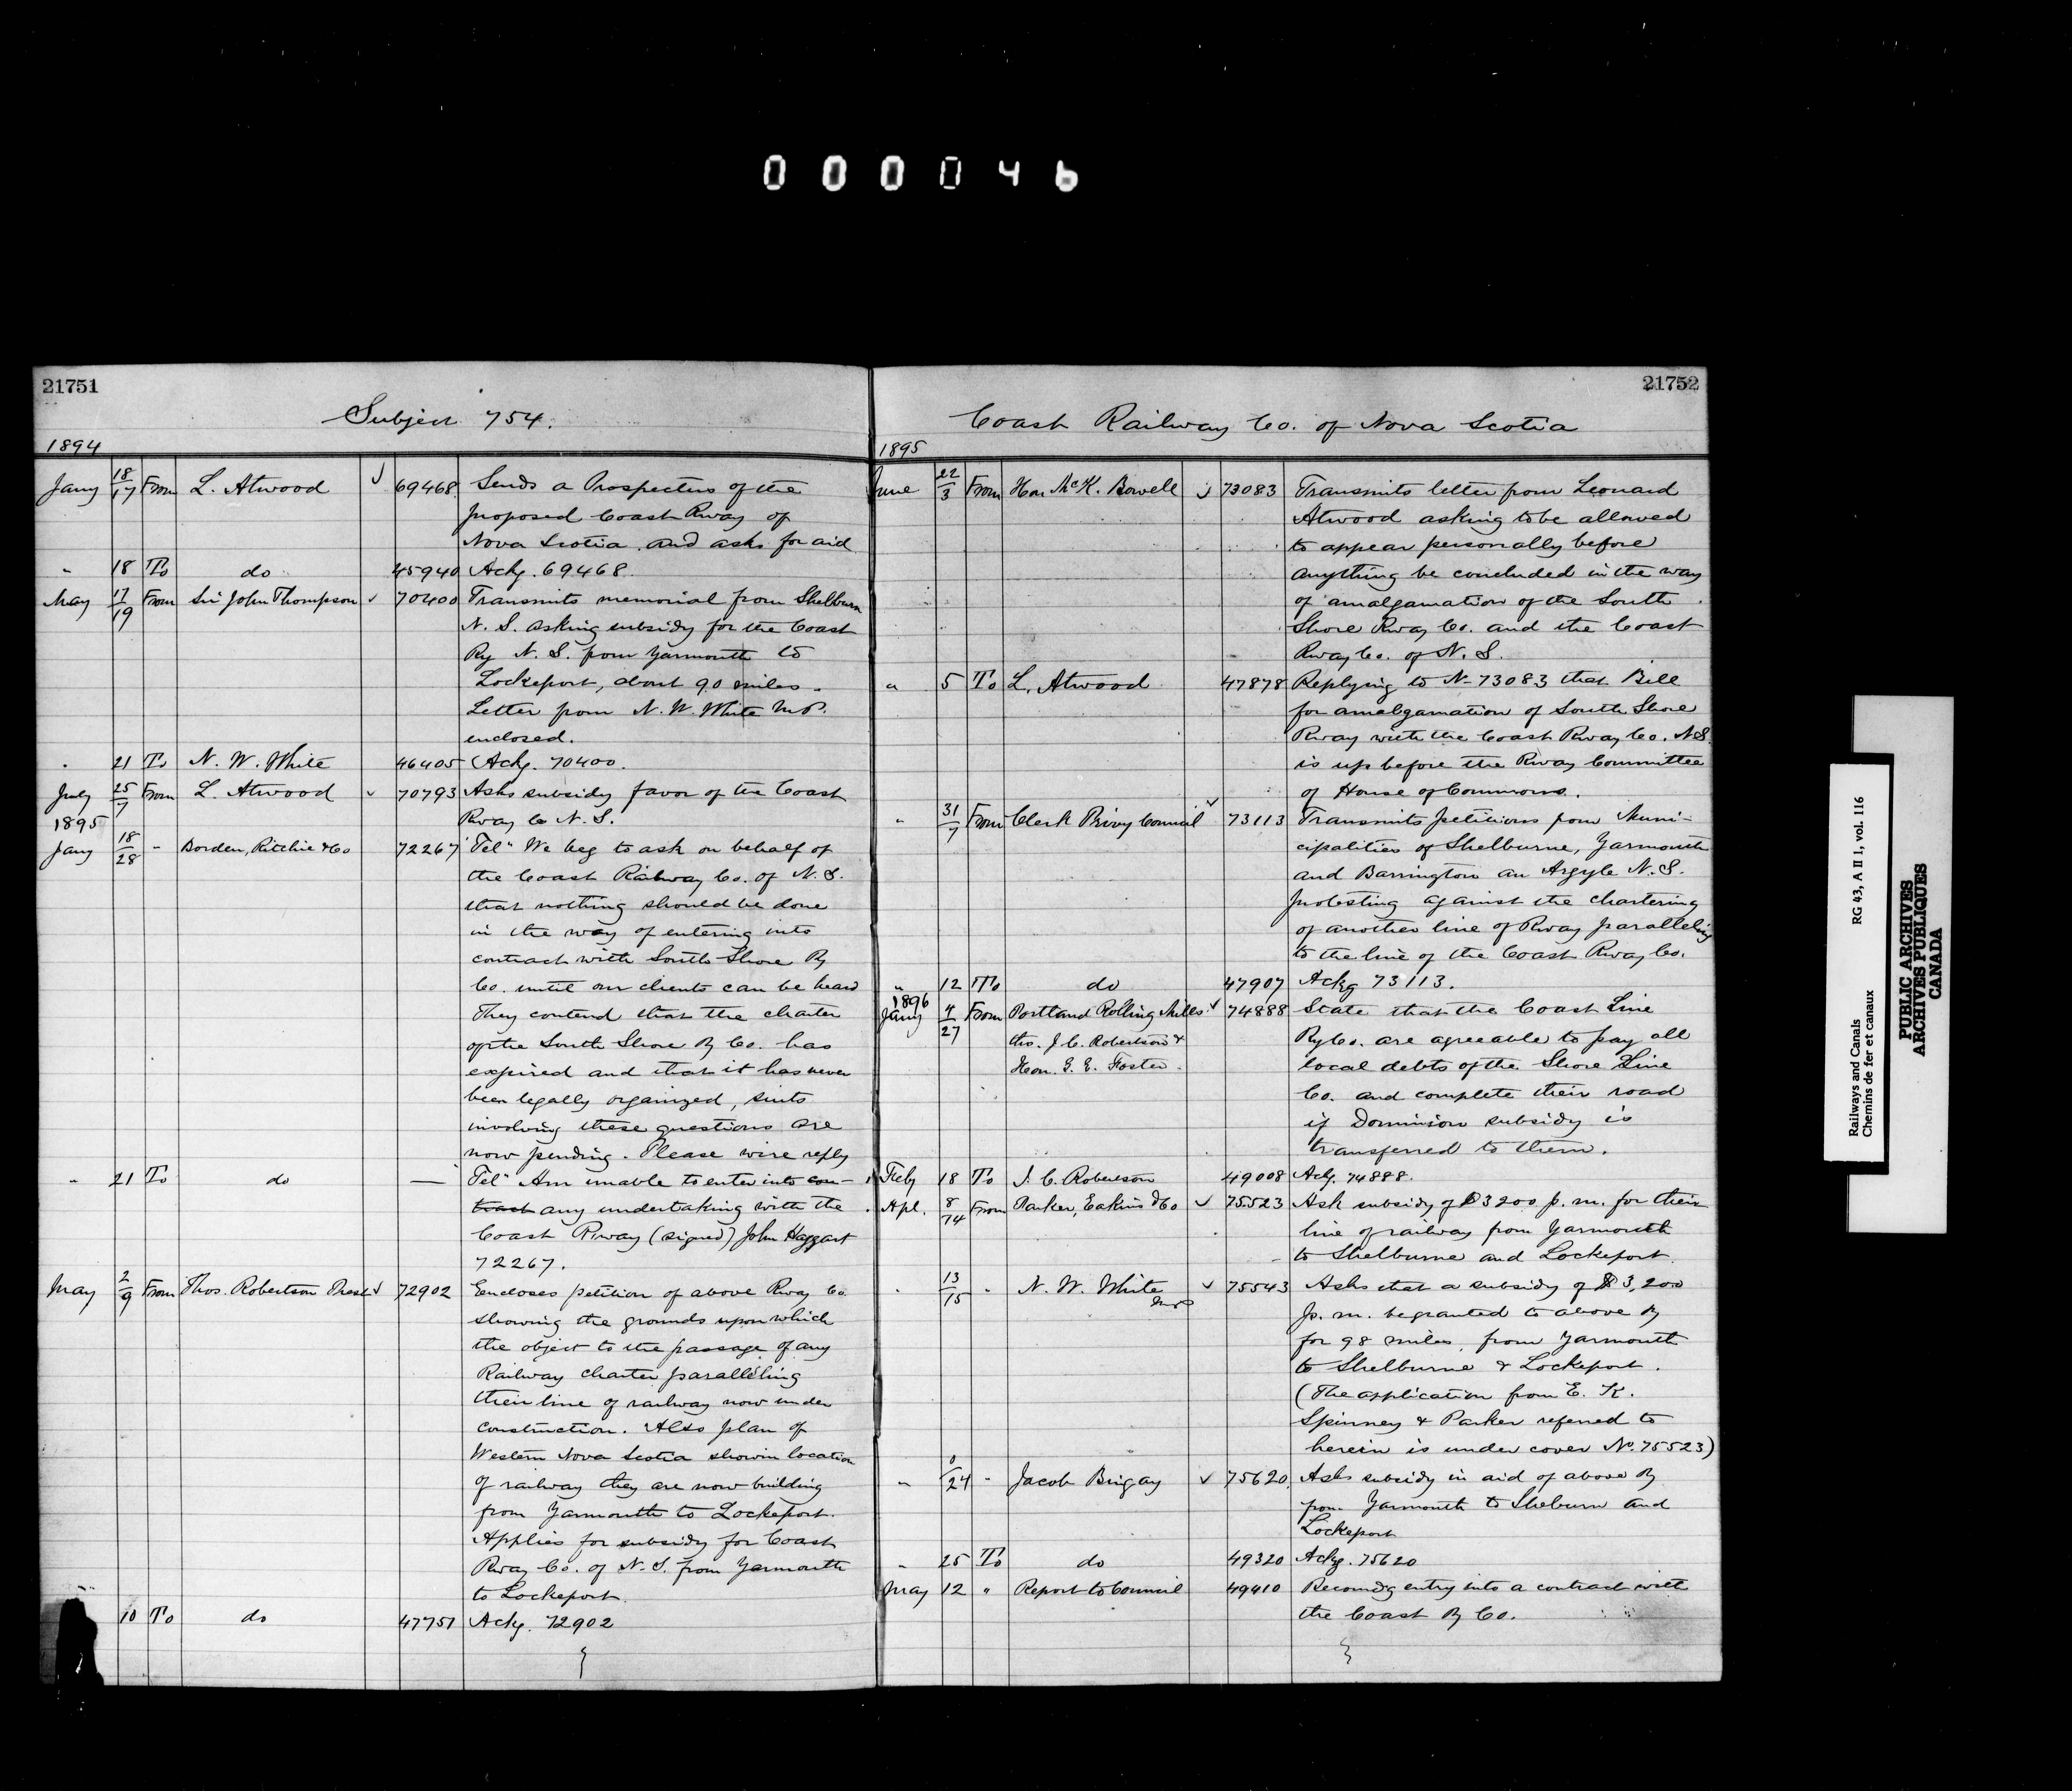 000046
21751
Subject 754.
1894
Jany 18/17 From L. Atwood ✓ 69468 Sends a Prospectus of the
proposed Coast Rway of
Nova Scotia and asks for aid
" 18 To do 45940 Ackg. 69468.
May 17/19 From Sir John Thompson ✓ 70400 Transmits memorial from Shelburn
N. S. asking subsidy for the Coast
Ry N. S. from Yarmouth to
Lockeport, about 90 miles.
Letter from N. W. White M.P.
enclosed.
" 21 To N. W. White 46405 Ackg. 70400.
July 25/7 From L. Atwood ✓ 70793 Asks subsidy favor of the Coast
Rway Co N. S.
1895
Jany 18/28 " Borden, Ritchie & Co 72267 Tel" We beg to ask on behalf of
the Coast Railway Co. of N. S.
that nothing should be done
in the way of entering into
contract with South Shore Ry
Co. until our clients can be heard
They contend that the charter
of the South Shore Ry Co. has
expired and that it has never
been legally organized, suits
involving these questions are
now pending. Please wire reply
" 21 To do — Tel" Am unable to enter into con-
tract any undertaking with the
Coast Rway (signed) John Haggart
72267.
May 2/9 From Thos. Robertson Prest ✓ 72902 Encloses petition of above Rway Co.
showing the grounds upon which
the object to the passage of any
Railway charter paralleling
their line of railway now under
construction. Also plan of
Western Nova Scotia showin location
of railway they are now building
from Yarmouth to Lockeport.
Applies for subsidy for Coast
Rway Co. of N. S. from Yarmouth
to Lockeport.
10 To do 47751 Ackg. 72902
21752
Coast Railway Co. of Nova Scotia
1895
June 22/3 From Hon McK. Bowell ✓ 73083 Transmits letter from Leonard
Atwood asking to be allowed
to appear personally before
anything be concluded in the way
of amalgamation of the South
Shore Rway Co. and the Coast
Rway Co. of N. S.
" 5 To L. Atwood 47878 Replying to N- 73083 that Bill
for amalgamation of South Shore
Rway with the Coast Rway Co. N.S.
is up before the Rway Committee
of House of Commons.
" 31/7 From Clerk Privy Council ✓ 73113 Transmits petitions from Muni-
cipalities of Shelburne, Yarmouth
and Barrington an Argyle N. S.
protesting against the chartering
of another line of Rway paralleling
to the line of the Coast Rway Co.
" 12 To do 47907 Ackg 73113.
1896
Jany 4/27 From Portland Rolling Mills ✓ 74888 State that the Coast Line
thro. J. C. Robertson & Ry Co. are agreeable to pay all
Hon. G. E. Foster. local debts of the Shore Line
Co. and complete their road
if Dominion subsidy is
transferred to them.
Feby 18 To J. C. Robertson 49008 Ackg. 74888.
Apl. 8/14 From Parker, Eakins & Co ✓ 75523 Ask subsidy of $3200 p. m. for their
line of railway from Yarmouth
to Shelburne and Lockeport.
" 13/15 " N. W. White M.P ✓ 75543 Asks that a subsidy of $3,200
p. m. be granted to above Ry
for 98 miles, from Yarmouth
to Shelburne & Lockeport.
(The application from E. K.
Spinney & Parker referred to
herein is under cover No. 75523)
" 0/24 " Jacob Bingay ✓ 75620 Asks subsidy in aid of above Ry
from Yarmouth to Sheburn and
Lockeport
" 25 To do 49320 Ackg. 75620
May 12 " Report to Council 49410 Recomdg entry into a contract with
the Coast Ry Co.
Railways and Canals RG 43, A II 1, vol. 116
Chemins de fer et canaux
PUBLIC ARCHIVES
ARCHIVES PUBLIQUES
CANADA